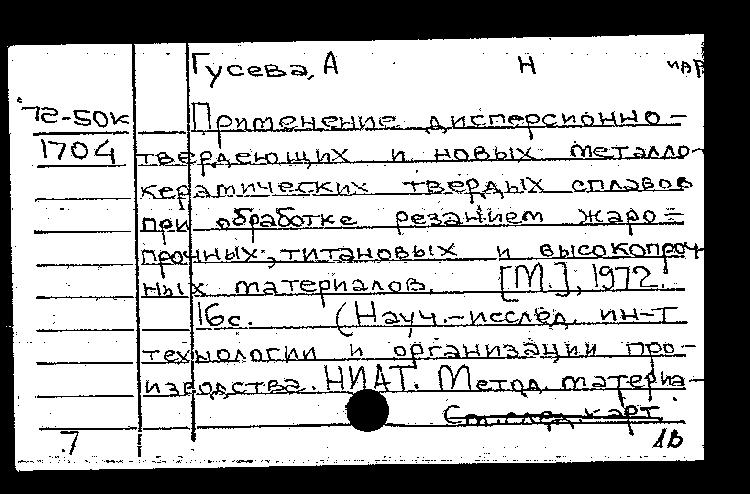 Гусева, А Н
72-50к Применение дисперсионно-
1704 твердеющих и новых металло-
керамических твердых сплавов
при обработке резанием жаро=
прочных, титановых и высокопроч-
ных материалов. [М.], 1972.
16с. (Науч.-исслед. ин-т
технологии и организации про-
изводства. НИАТ. Метод. материа-
См. след. карт.
7 1в